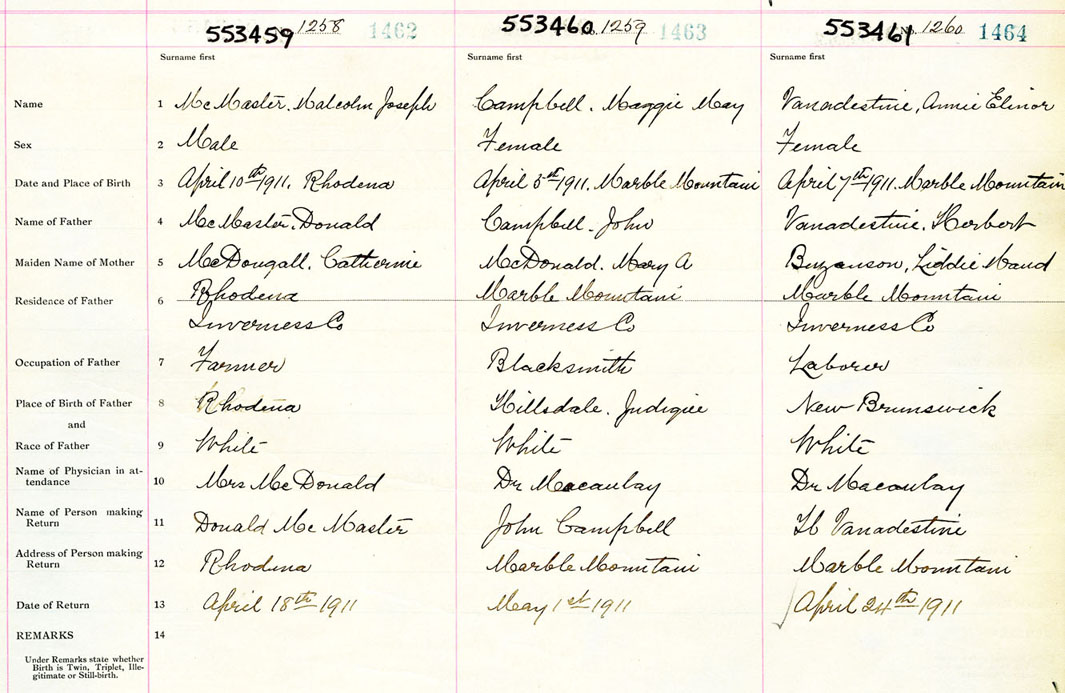 553459 1258 1462 553460 No. 1259 1463 553461 No. 1260 1464
Surname first Surname first Surname first
Name 1 McMaster. Malcolm Joseph Campbell. Maggie May Vanadestine, Annie Elinor
Sex 2 Male Female Female
Date and Place of Birth 3 April 10th 1911. Rhodena April 5st 1911. Marble Mountain April 7th 1911. Marble Mountain
Name of Father 4 McMaster. Donald Campbell. John Vanadestine. Herbert
Maiden Name of Mother 5 McDougall. Catherine McDonald. Mary A Buzanson, Liddie Maud
Residence of Father 6 Rhodena Marble Mountain Marble Mountain
Inverness Co Inverness Co Inverness Co
Occupation of Father 7 Farmer Blacksmith Laborer
Place of Birth of Father 8 Rhodena Hillsdale. Judique New Brunswick
and
Race of Father 9 White White White
Name of Physician in at-
tendance 10 Mrs McDonald Dr Macaulay Dr Macaulay
Name of Person making
Return 11 Donald McMaster John Campbell H Vanadestine
Address of Person making
Return 12 Rhodena Marble Mountain Marble Mountain
Date of Return 13 April 18th 1911 May 1st 1911 April 24th 1911
REMARKS 14
Under Remarks state whether
Birth is Twin, Triplet, Ille-
gitimate or Still-birth.